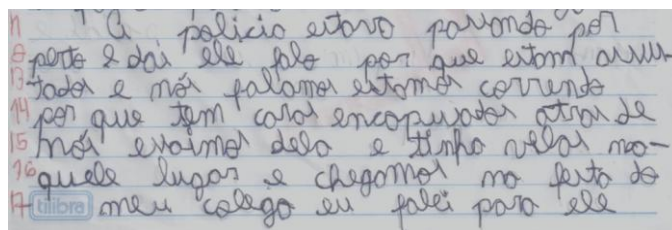 11 A policia estava passando por
perto e dai ele falo por que estam assus-
13 tados e nós falamos estamos correndo
14 por que tem caras encapusados atras de
15 nós e vimos dela e tinha velas na-
16 quele lugar e chegamos na festa do
17 meu colega eu falei para ele
tilibra